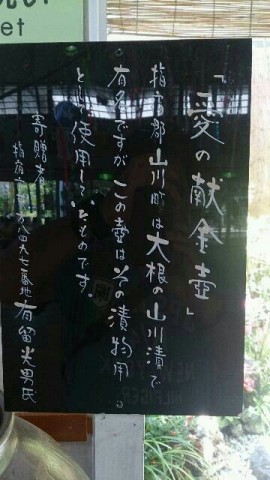 「愛の献金壺」
指宿郡山川町は大根の山川漬で
有名ですが この壺はその漬物用
として使用していたものです。
寄贈者
有留光男氏
et